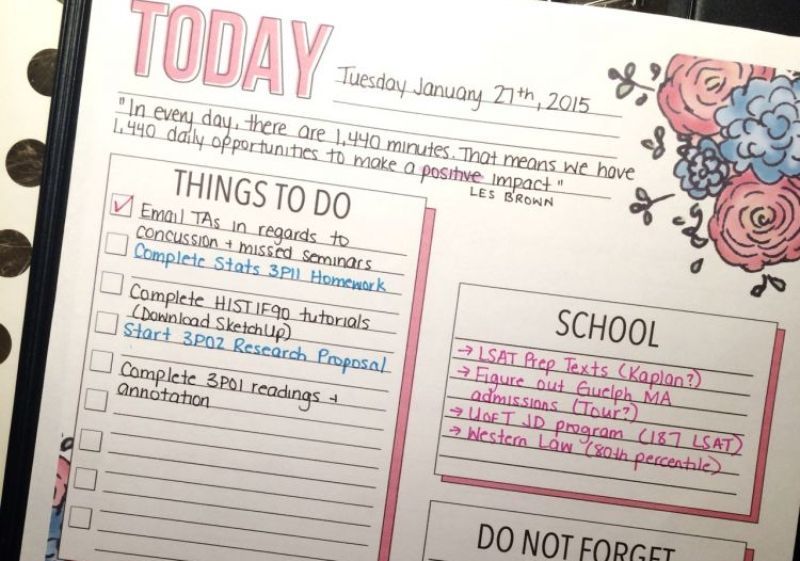 TODAY
Tuesday January 27th, 2015
"In every day, there are 1,440 minutes. That means we have
1,440 daily opportunities to make a positive impact"
LES BROWN
THINGS TO DO
Email TAs in regards to
concussion + missed seminars
Complete Stats 3P11 Homework
Complete HIST1F90 tutorials
(Download SketchUp)
Start 3P02 Research Proposal
Complete 3P01 readings +
annotation
SCHOOL
→ LSAT Prep Texts (Kaplan?)
→ Figure out Guelph MA
admissions (Tour?)
→ UofT JD program (167 LSAT)
→ Western Law (80th percentile)
DO NOT FORGET